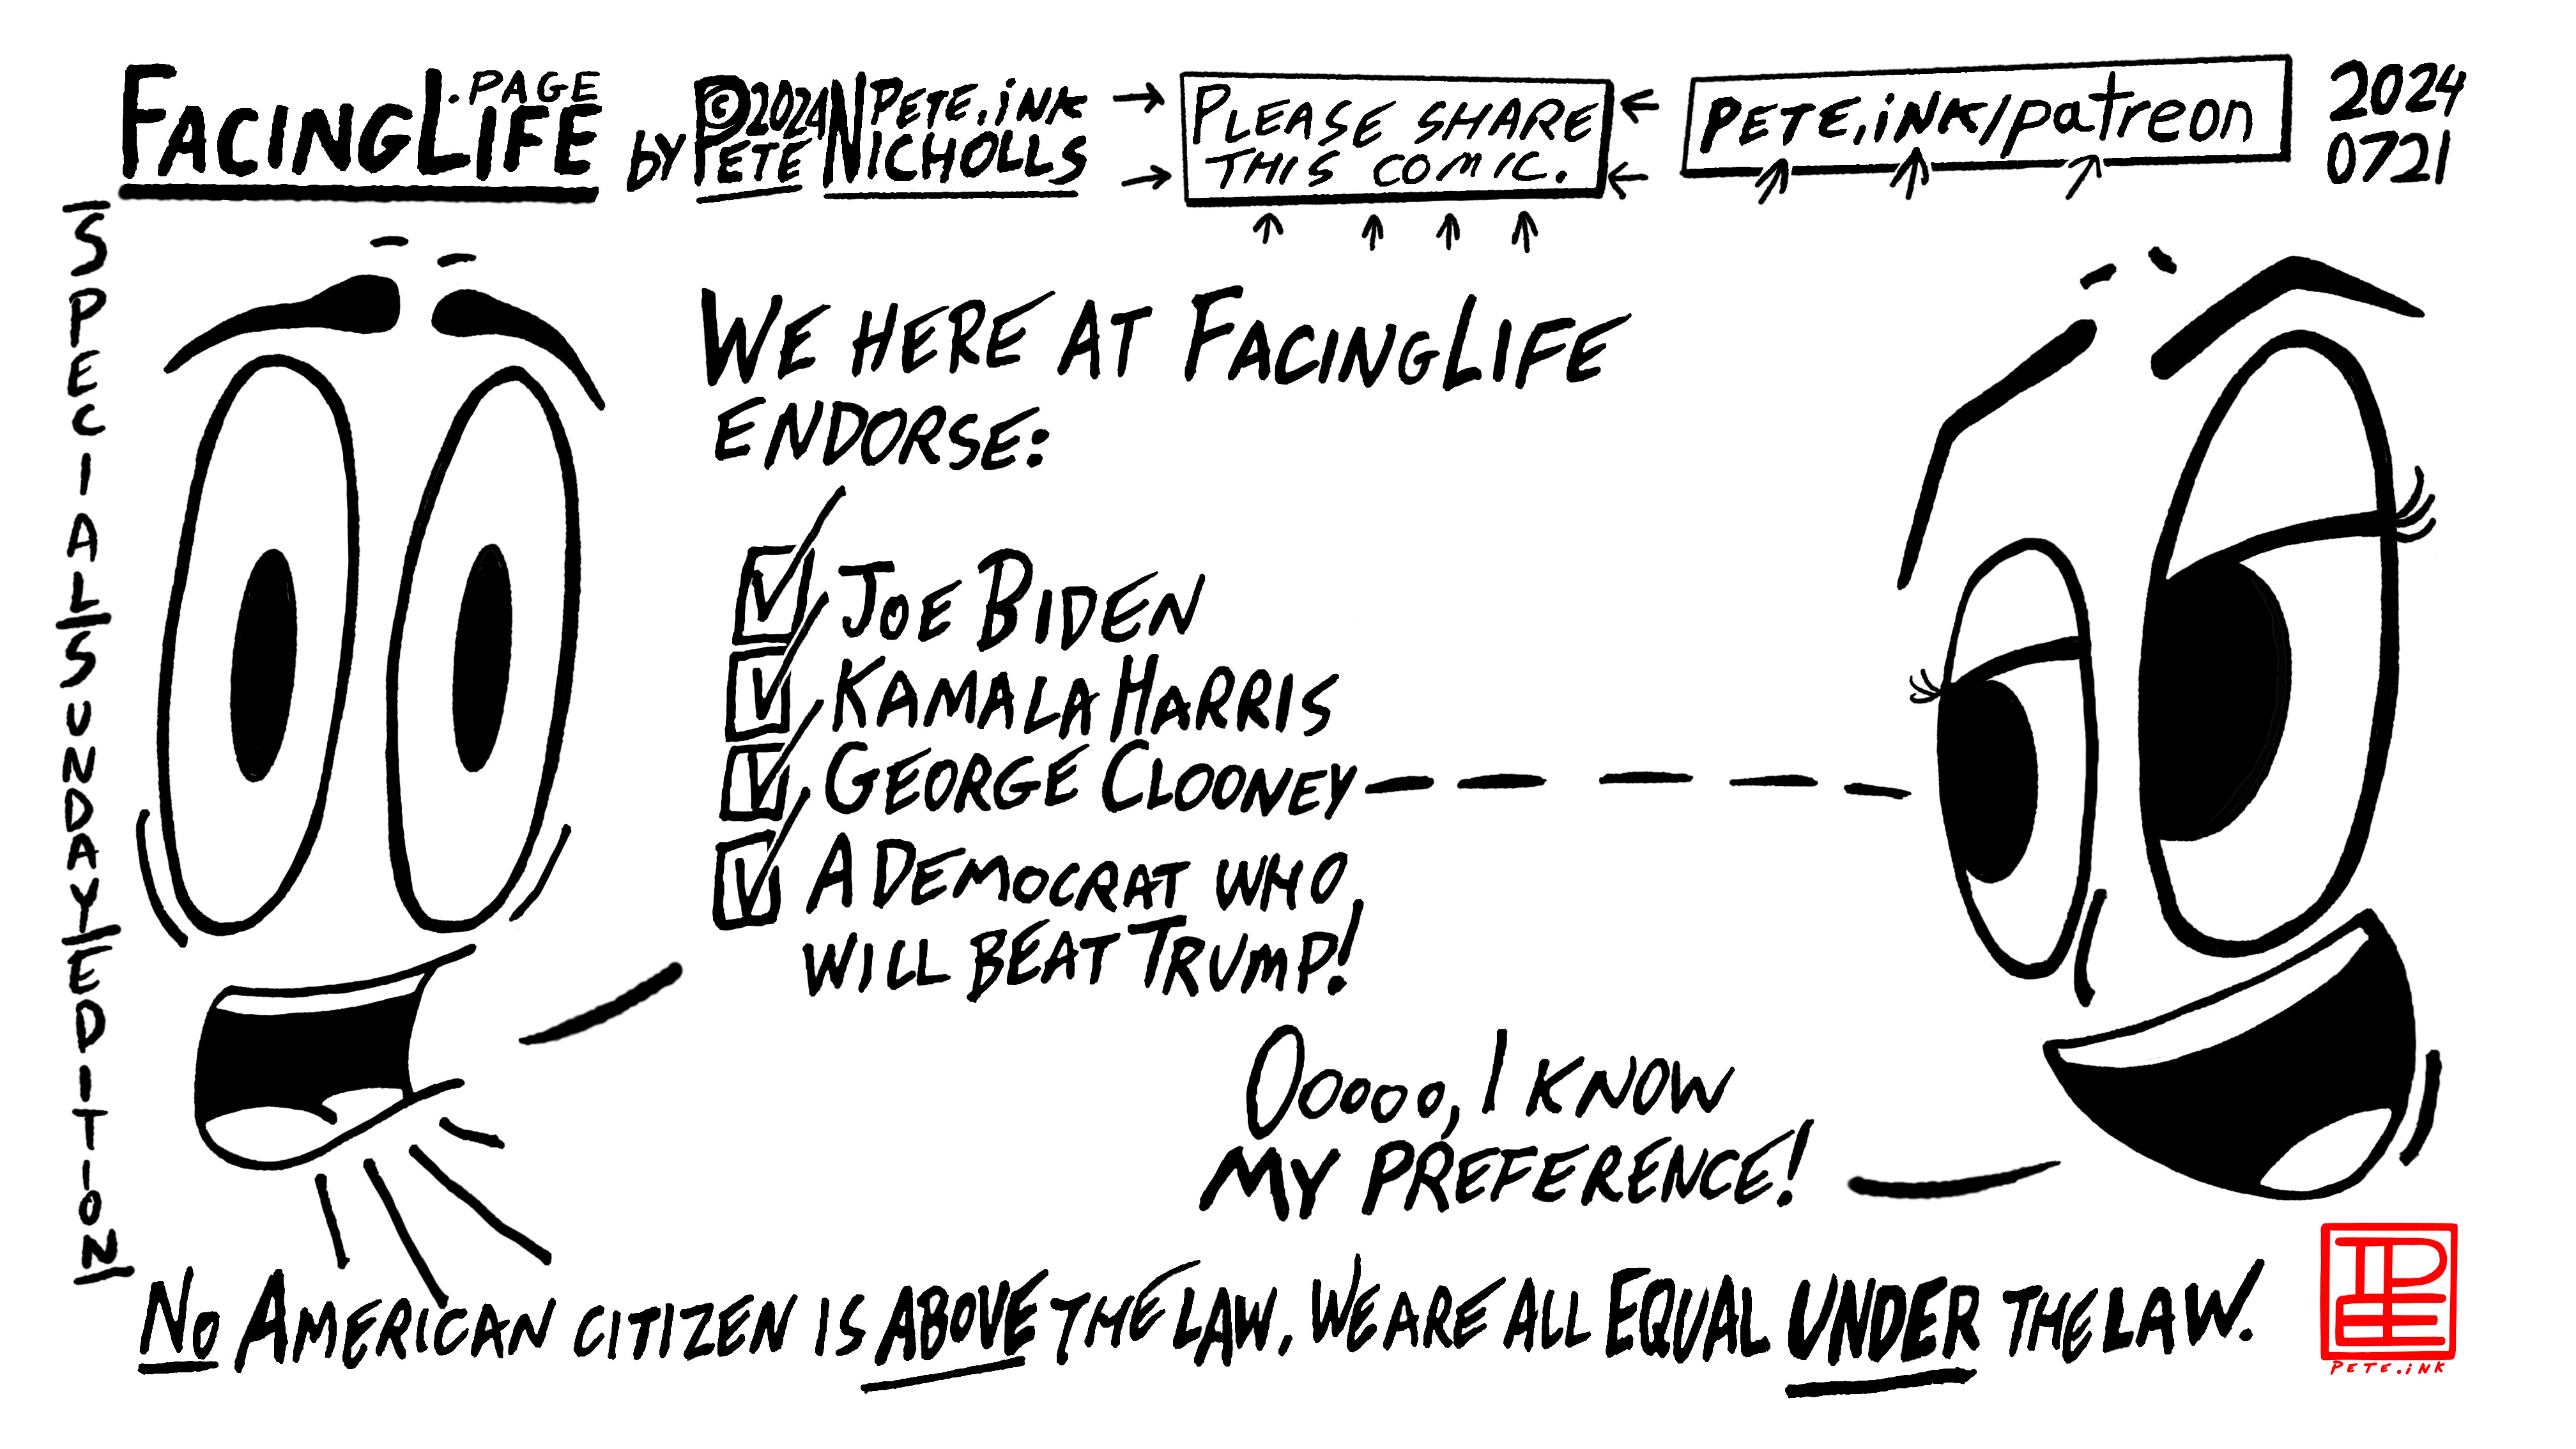 FACINGLIFE.PAGE
by ©2024 PETE.iNK
PETE NICHOLLS
PLEASE SHARE
THIS COMIC.
PETE.iNK/patreon
2024
0721
SPECIAL SUNDAY EDITION
WE HERE AT FACINGLIFE
ENDORSE:
JOE BIDEN
KAMALA HARRIS
GEORGE CLOONEY
A DEMOCRAT WHO
WILL BEAT TRUMP!
OOOOO, I KNOW
MY PREFERENCE!
NO AMERICAN CITIZEN IS ABOVE THE LAW. WE ARE ALL EQUAL UNDER THE LAW.
PETE.iNK